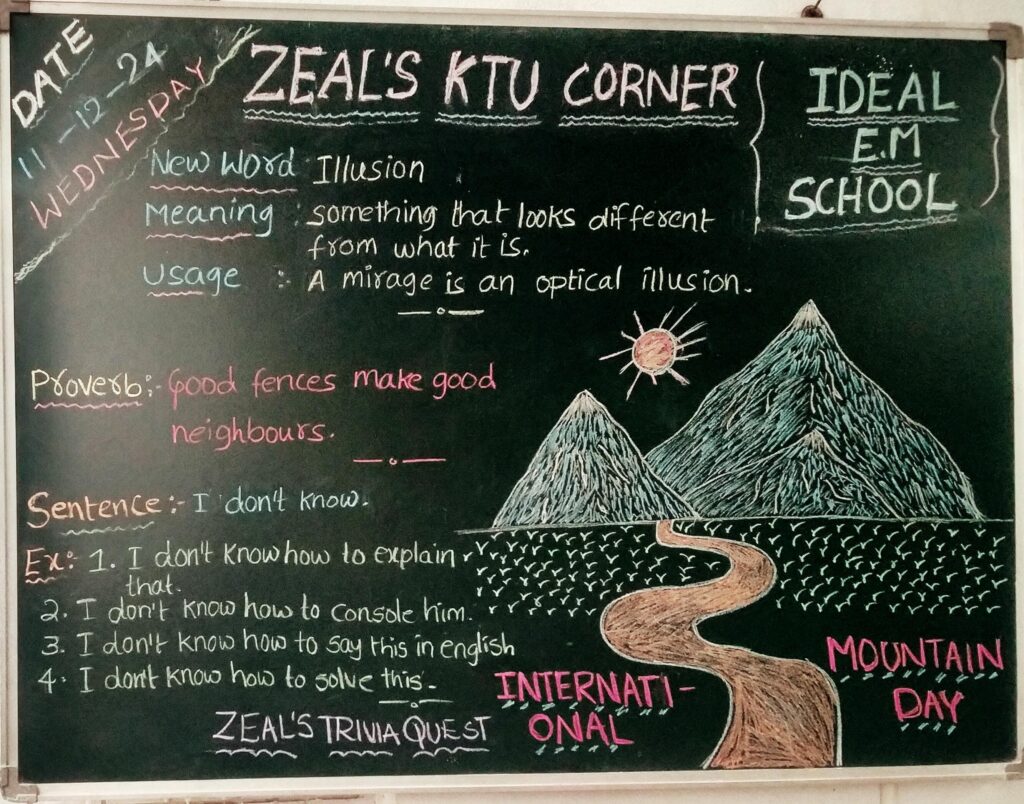 DATE
11-12-24
WEDNESDAY
ZEAL'S KTU CORNER
IDEAL
E.M
SCHOOL
New Word : Illusion
Meaning : something that looks different
from what it is.
Usage :- A mirage is an optical illusion.
Proverb:- Good fences make good
neighbours.
Sentence:- I don't know.
Ex: 1. I don't know how to explain
that.
2. I don't know how to console him.
3. I don't know how to say this in english
4. I don't know how to solve this.
INTERNATI-
ONAL
MOUNTAIN
DAY
ZEAL'S TRIVIA QUEST